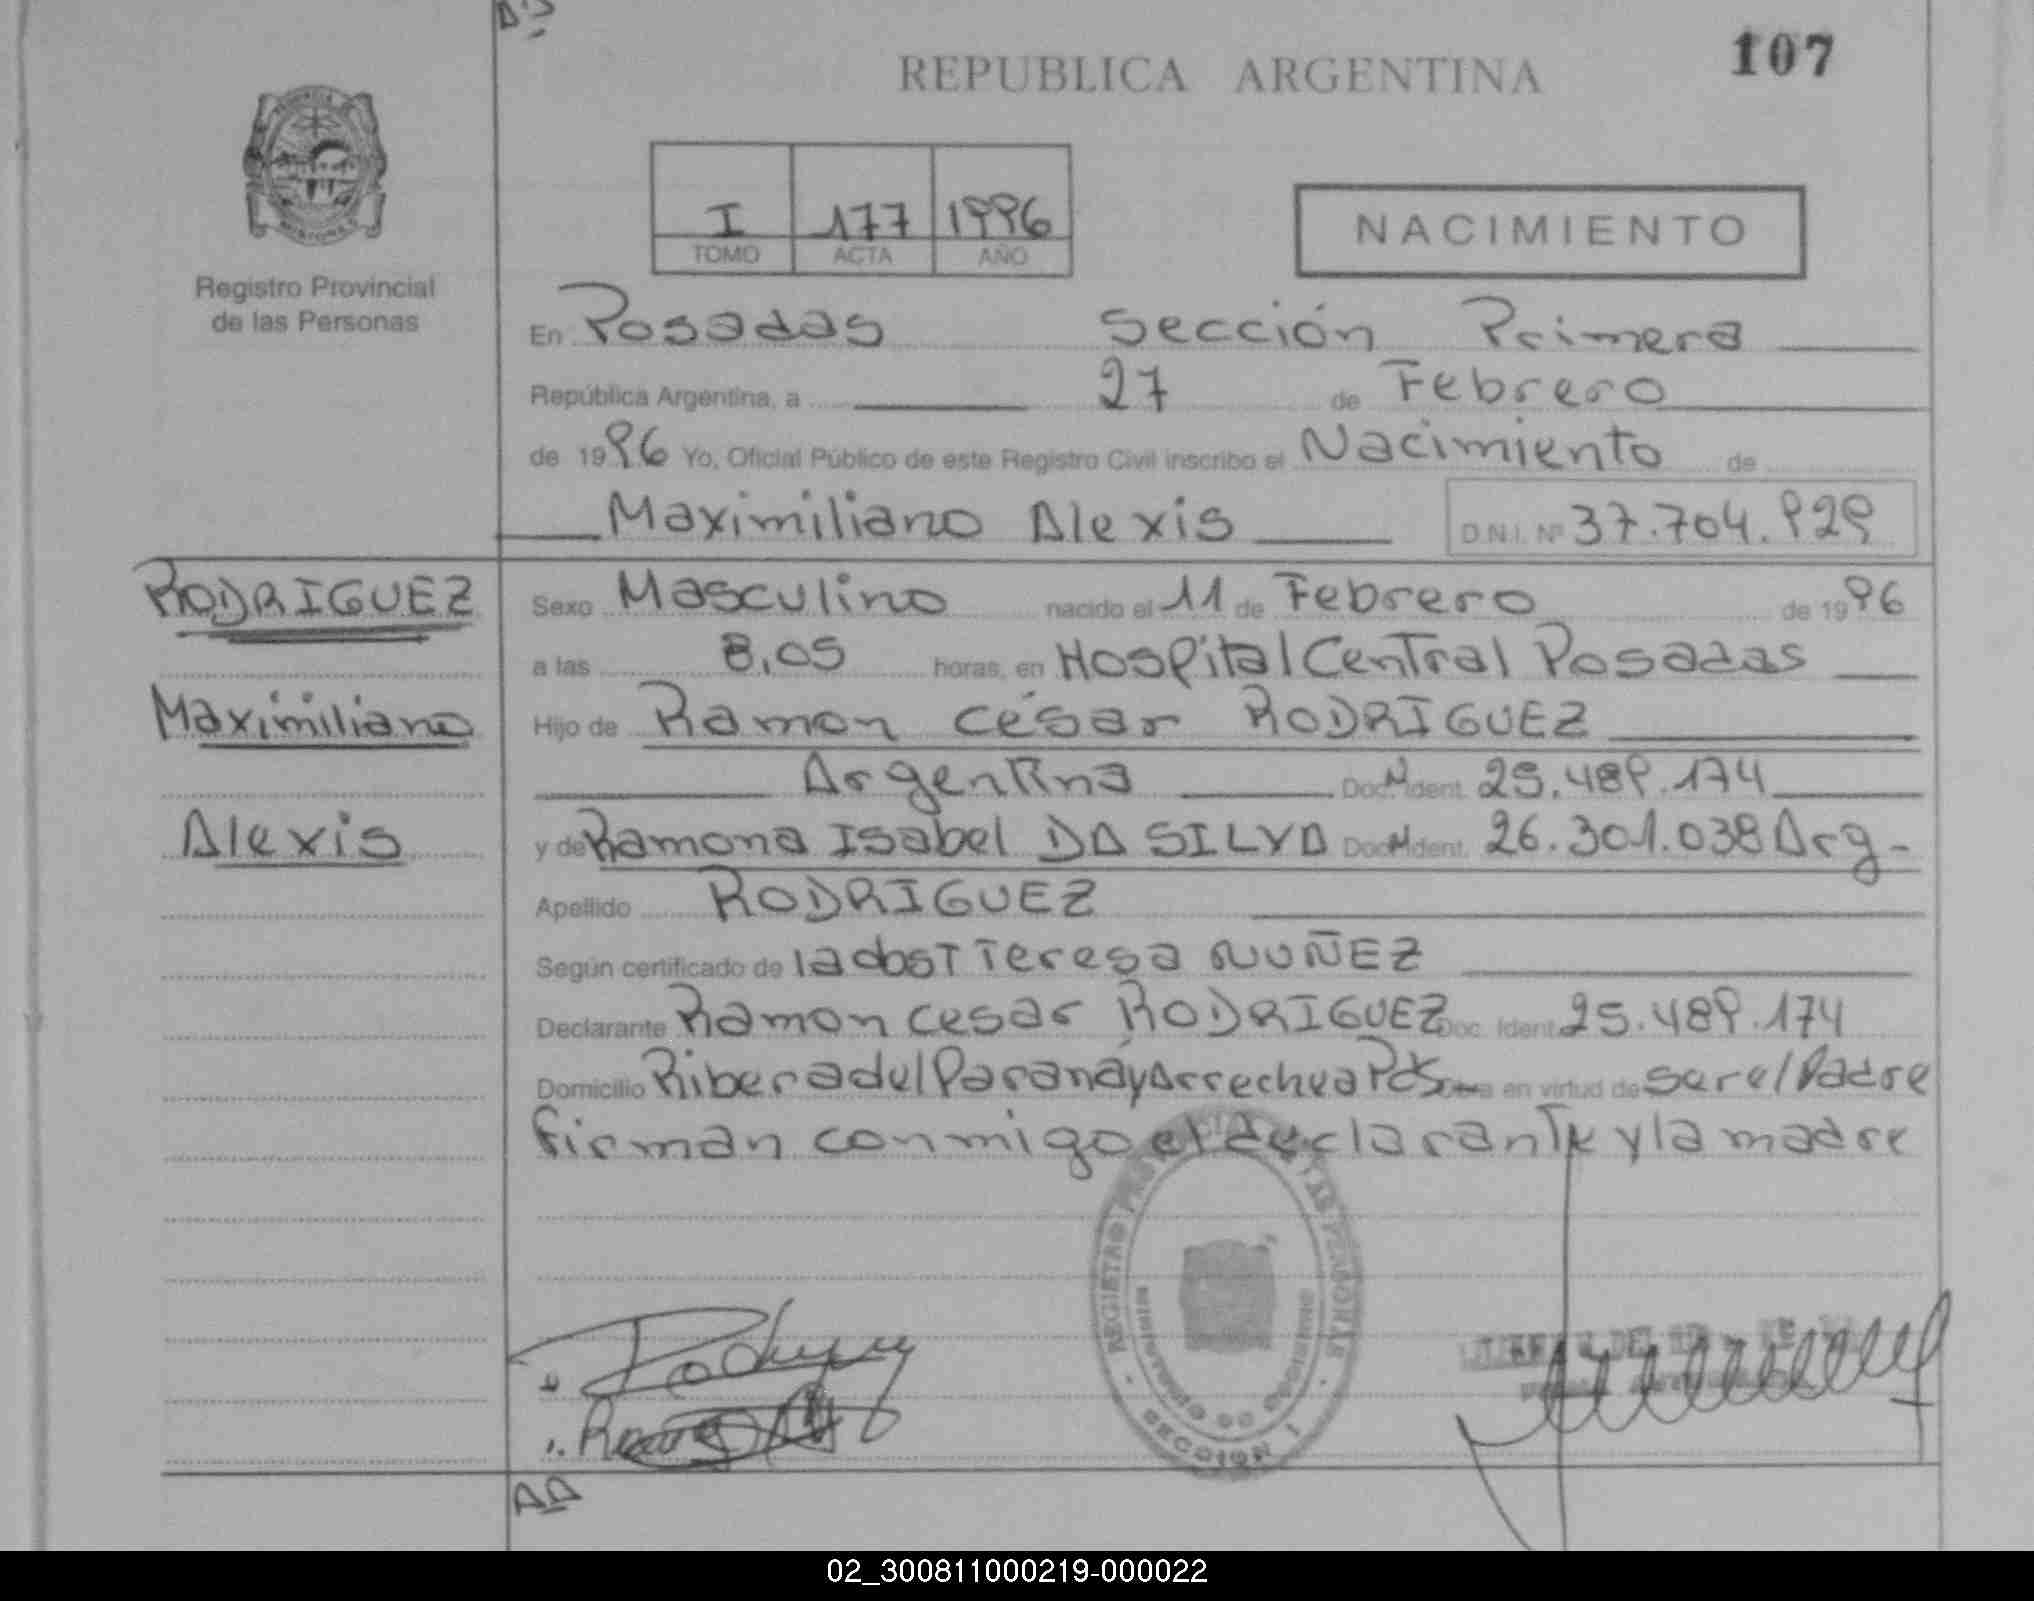 107
REPUBLICA ARGENTINA
I 177 1996
TOMO ACTA AÑO
NACIMIENTO
Registro Provincial
de las Personas
En Posadas Sección Primera
República Argentina, a 27 de Febrero
de 1996 Yo, Oficial Público de este Registro Civil inscribo el Nacimiento de
Maximiliano Alexis D.N.I. Nº 37.704.929
RODRIGUEZ
Maximiliano
Alexis
Sexo Masculino nacido el 11 de Febrero de 1996
a las 8,05 horas, en Hospital Central Posadas
Hijo de Ramon César RODRIGUEZ
Argentina Doc. Ident. 25.489.174
y de Ramona Isabel DA SILVA Doc. Ident. 26.301.038 Arg-
Apellido RODRIGUEZ
Según certificado de la obst Teresa NUÑEZ
Declarante Ramon Cesar RODRIGUEZ Doc. Ident. 25.489.174
Domicilio Ribera del Paraná y Arrechea Pdas en virtud de ser el Padre
firman conmigo el declarante y la madre
REGISTRO DE LAS PERSONAS
MINISTERIO DE GOBIERNO
SECCION 1
02_300811000219-000022